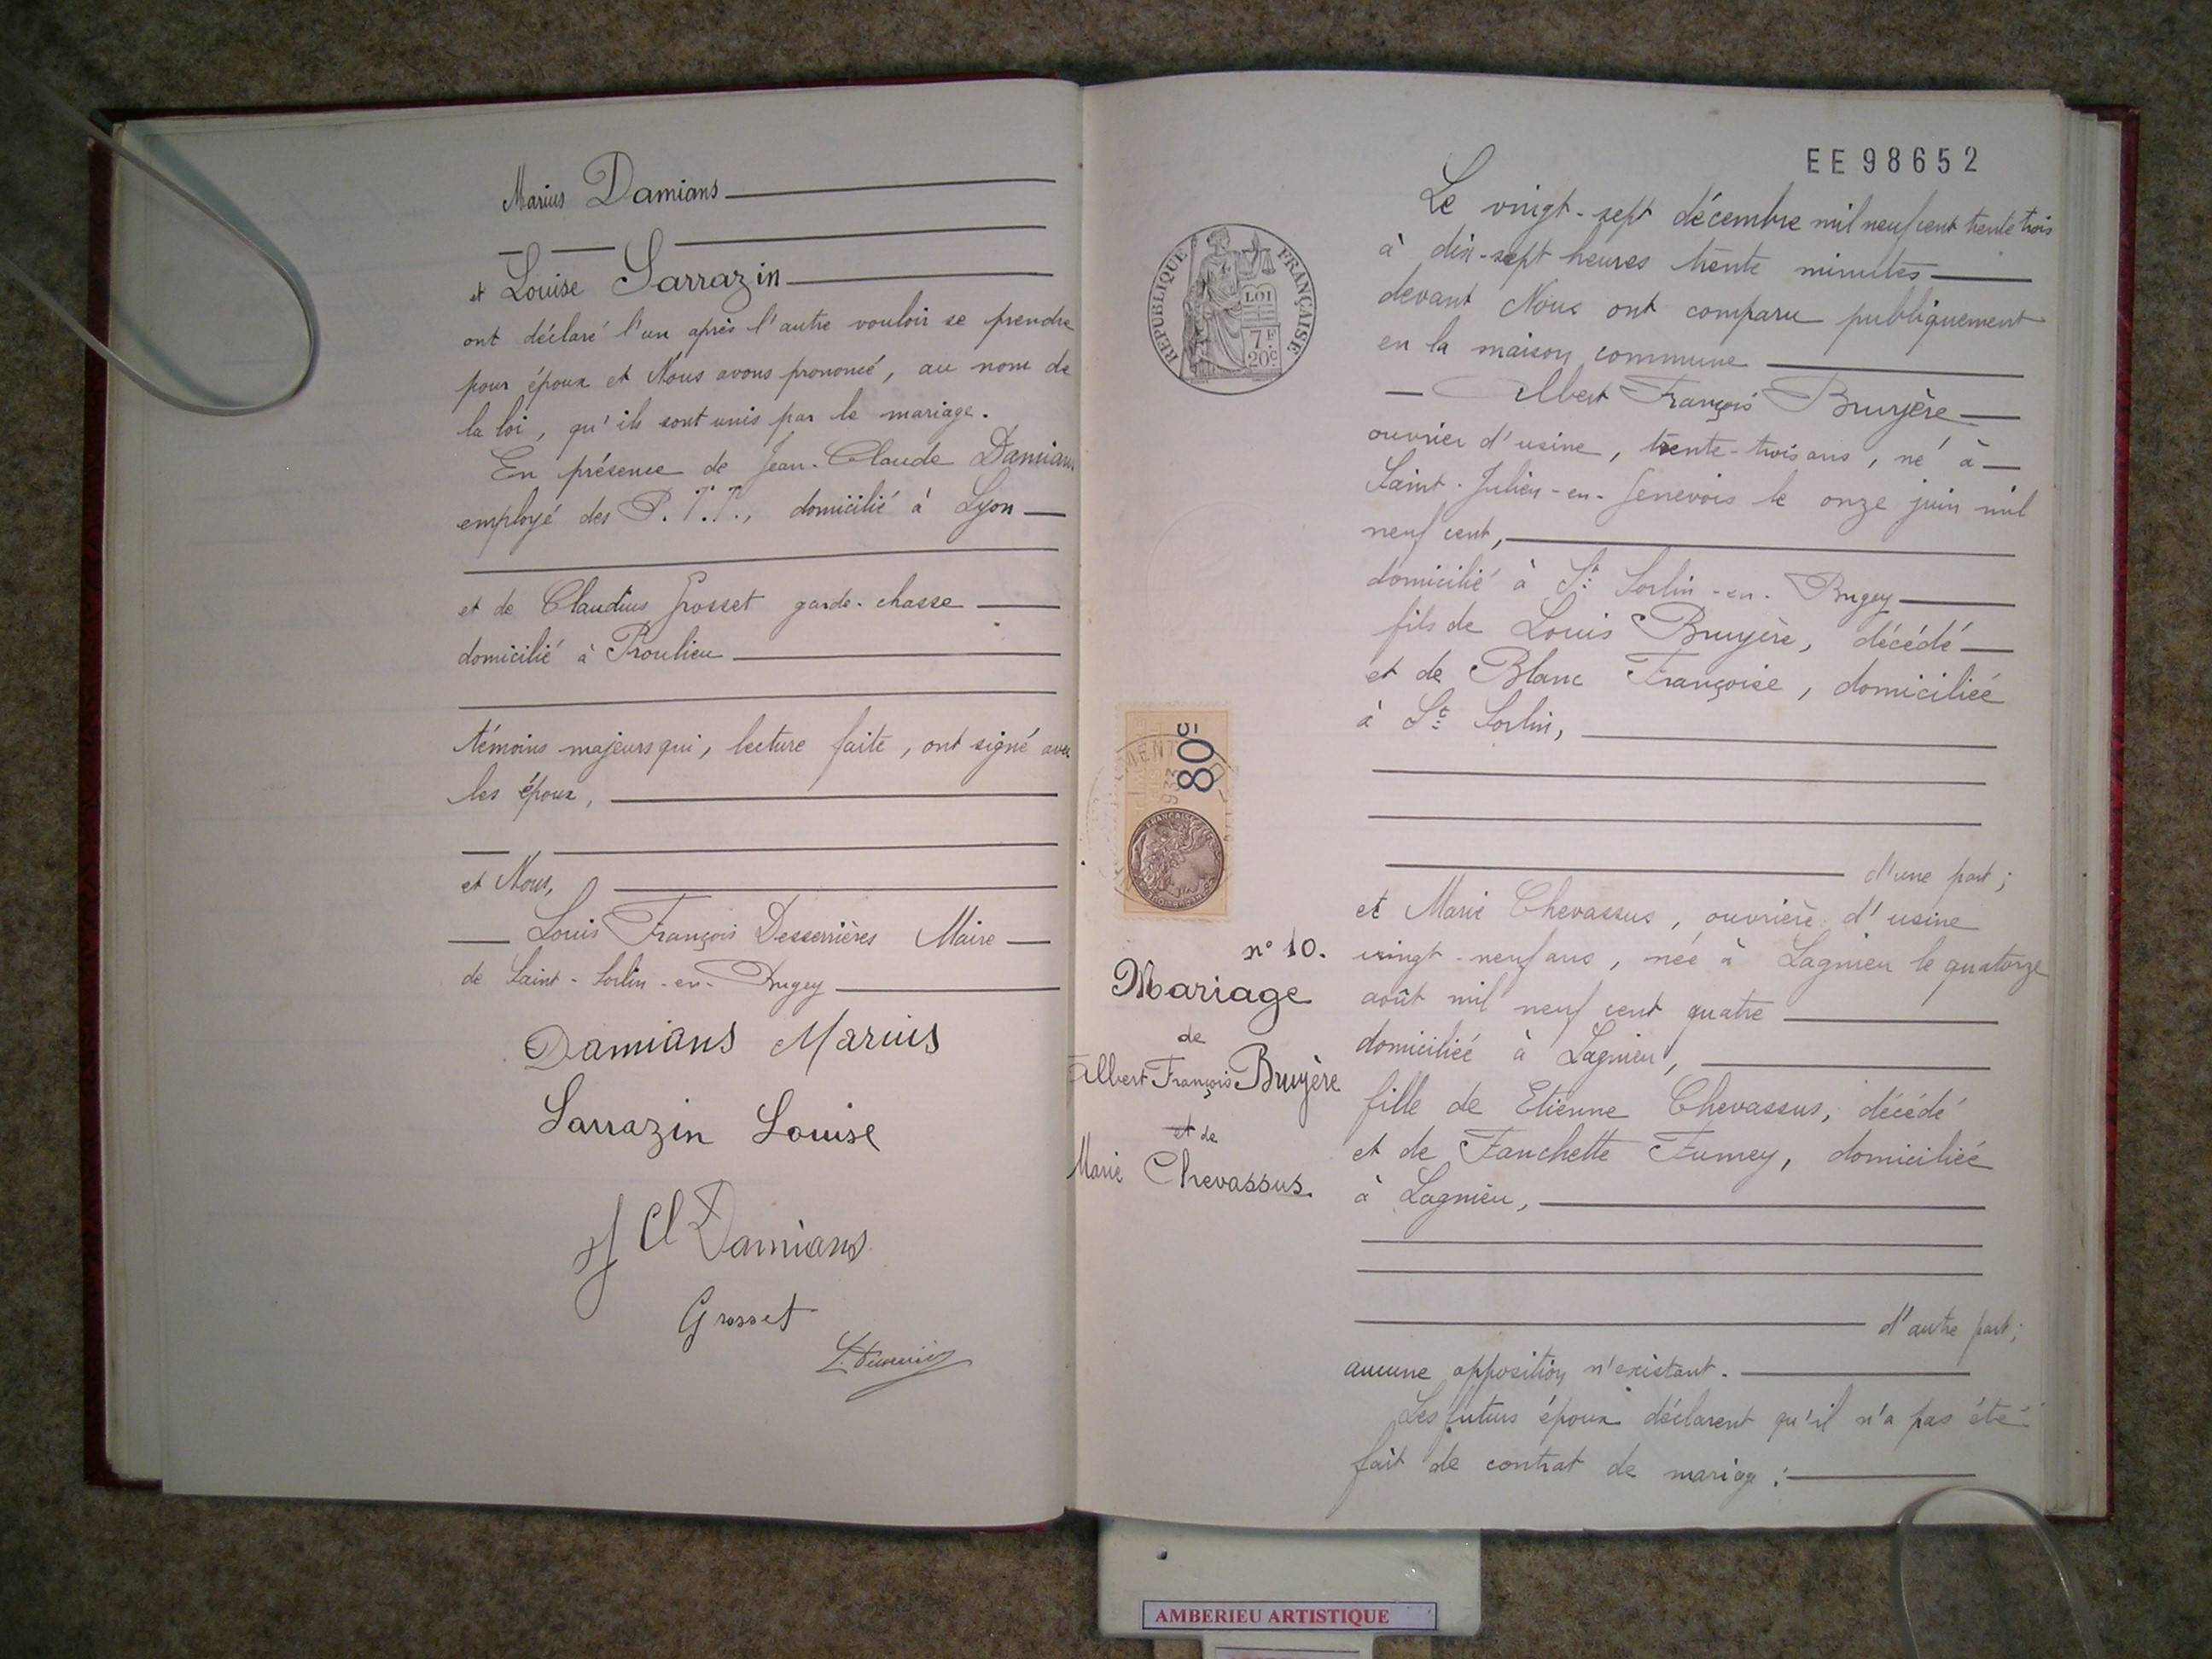 Marius Damians
et Louise Sarrazin
ont déclaré l'un après l'autre vouloir se prendre
pour époux et Nous avons prononcé, au nom de
la loi, qu'ils sont unis par le mariage.
En présence de Jean-Claude Damians
employé des P.T.T., domicilié à Lyon
et de Claudius Grosset garde-chasse
domicilié à Proulieu
témoins majeurs qui, lecture faite, ont signé avec
les époux,
et Nous,
Louis François Desserrières Maire
de Saint-Sorlin-en-Bugey
Damians Marius
Sarrazin Louise
J Cl Damians
Grosset
EE98652
REPUBLIQUE FRANÇAISE
LOI
7F
20c
Le vingt-sept décembre mil neuf cent trente trois
à dix-sept heures trente minutes
devant Nous ont comparu publiquement
en la maison commune
Albert François Bruyère
ouvrier d'usine, trente-trois ans, né à
Saint-Julien-en-Genevois le onze juin mil
neuf cent,
domicilié à St Sorlin-en-Bugey
fils de Louis Bruyère, décédé
et de Blanc Françoise, domiciliée
à St Sorlin,
d'une part;
80
n° 10.
Mariage
de
Albert François Bruyère
et de
Marie Chevassus.
et Marie Chevassus, ouvrière d'usine
vingt-neuf ans, née à Lagnieu le quatorze
août mil neuf cent quatre
domiciliée à Lagnieu,
fille de Etienne Chevassus, décédé
et de Fanchette Fumey, domiciliée
à Lagnieu,
d'autre part;
aucune opposition n'existant.
Les futurs époux déclarent qu'il n'a pas été
fait de contrat de mariage:
AMBERIEU ARTISTIQUE